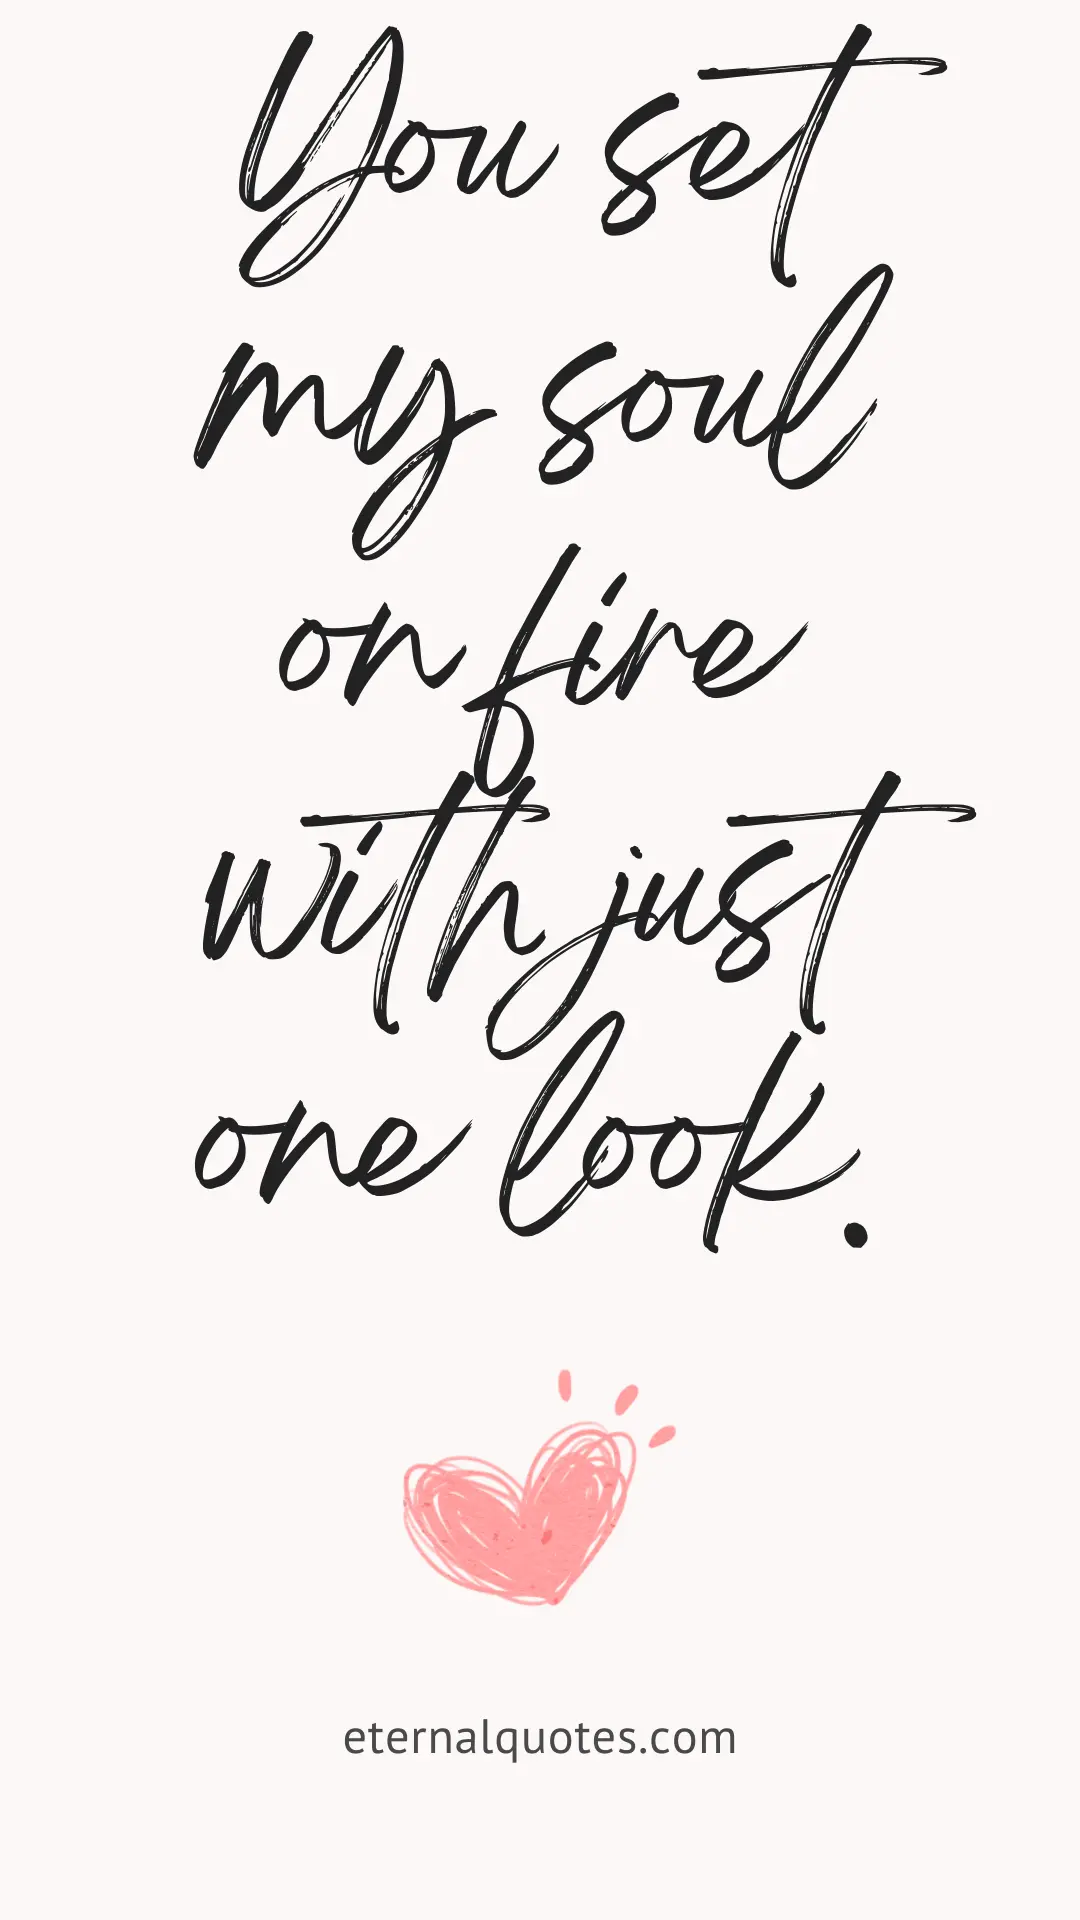 You set
my soul
on fire
with just
one look.
eternalquotes.com